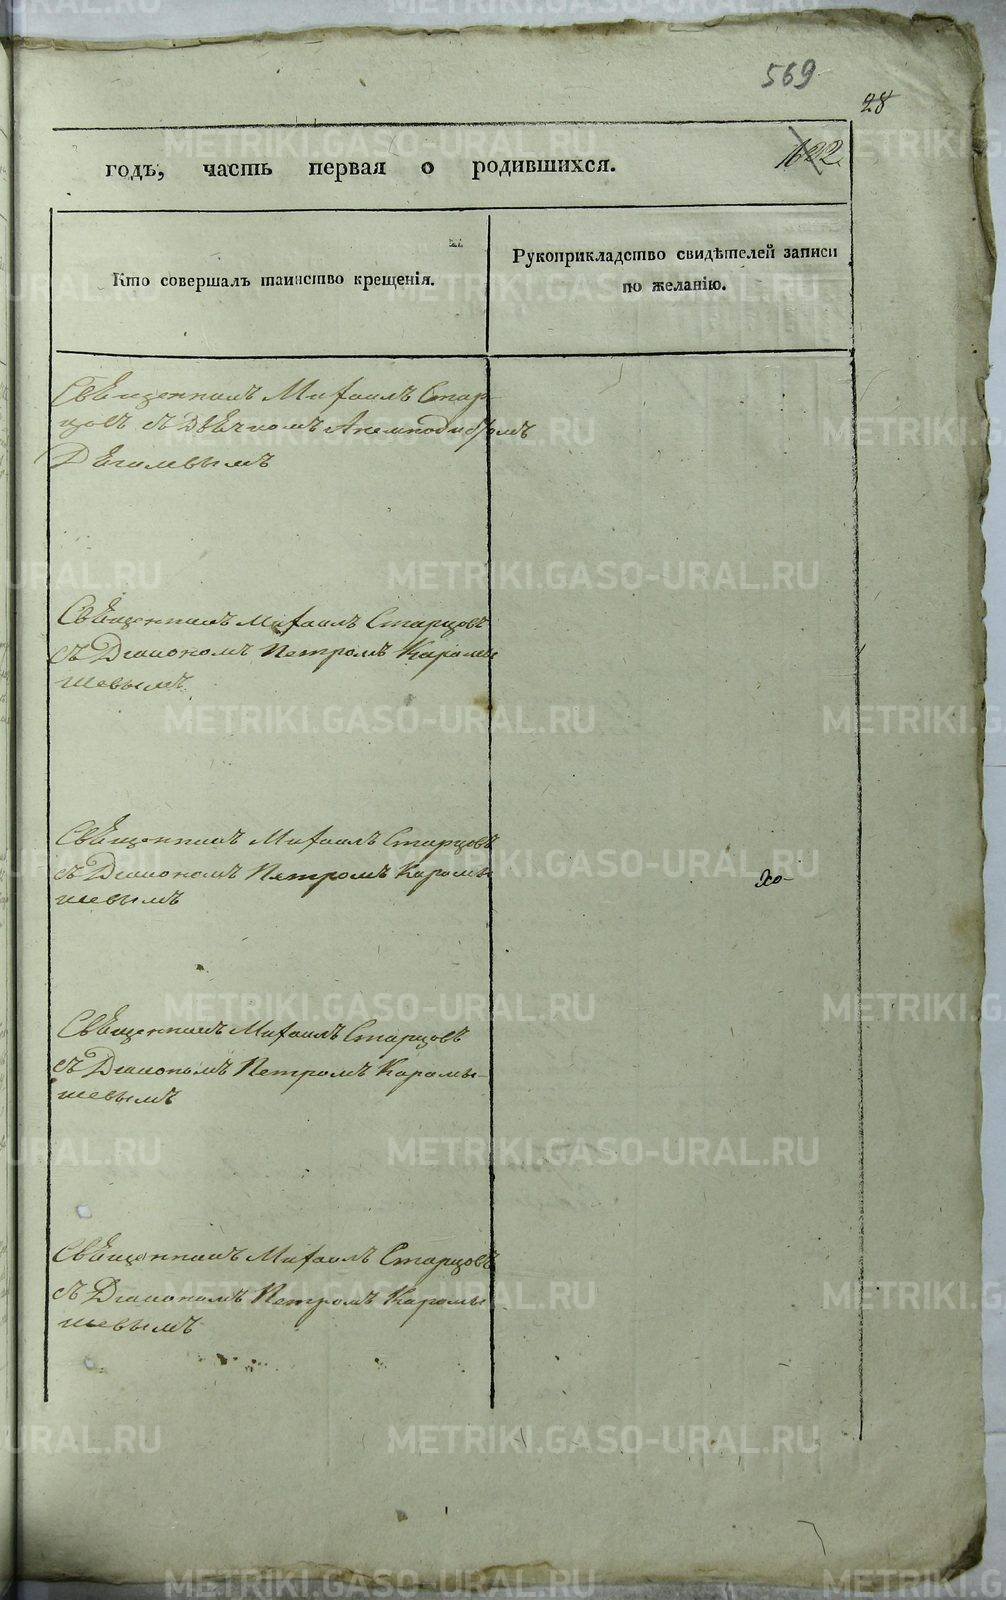 569
28
1622
годъ, часть первая о родившихся.
Кто совершалъ таинство крещенія.
Рукоприкладство свидѣтелей записи
по желанію.
Священникъ Михаилъ Стар-
цовъ съ Дьячкомъ
Дягилевымъ
Священникъ Михаилъ Старцовъ
съ Діакономъ Петромъ Карамы
шевымъ
Священникъ Михаилъ Старцовъ
съ Діакономъ Петромъ Карамы
шевымъ
Священникъ Михаилъ Старцовъ
съ Діакономъ Петромъ Карамы-
шевымъ
Священникъ Михаилъ Старцовъ
съ Діакономъ Петромъ Карамы
шевымъ
METRIKI.GASO-URAL.RU